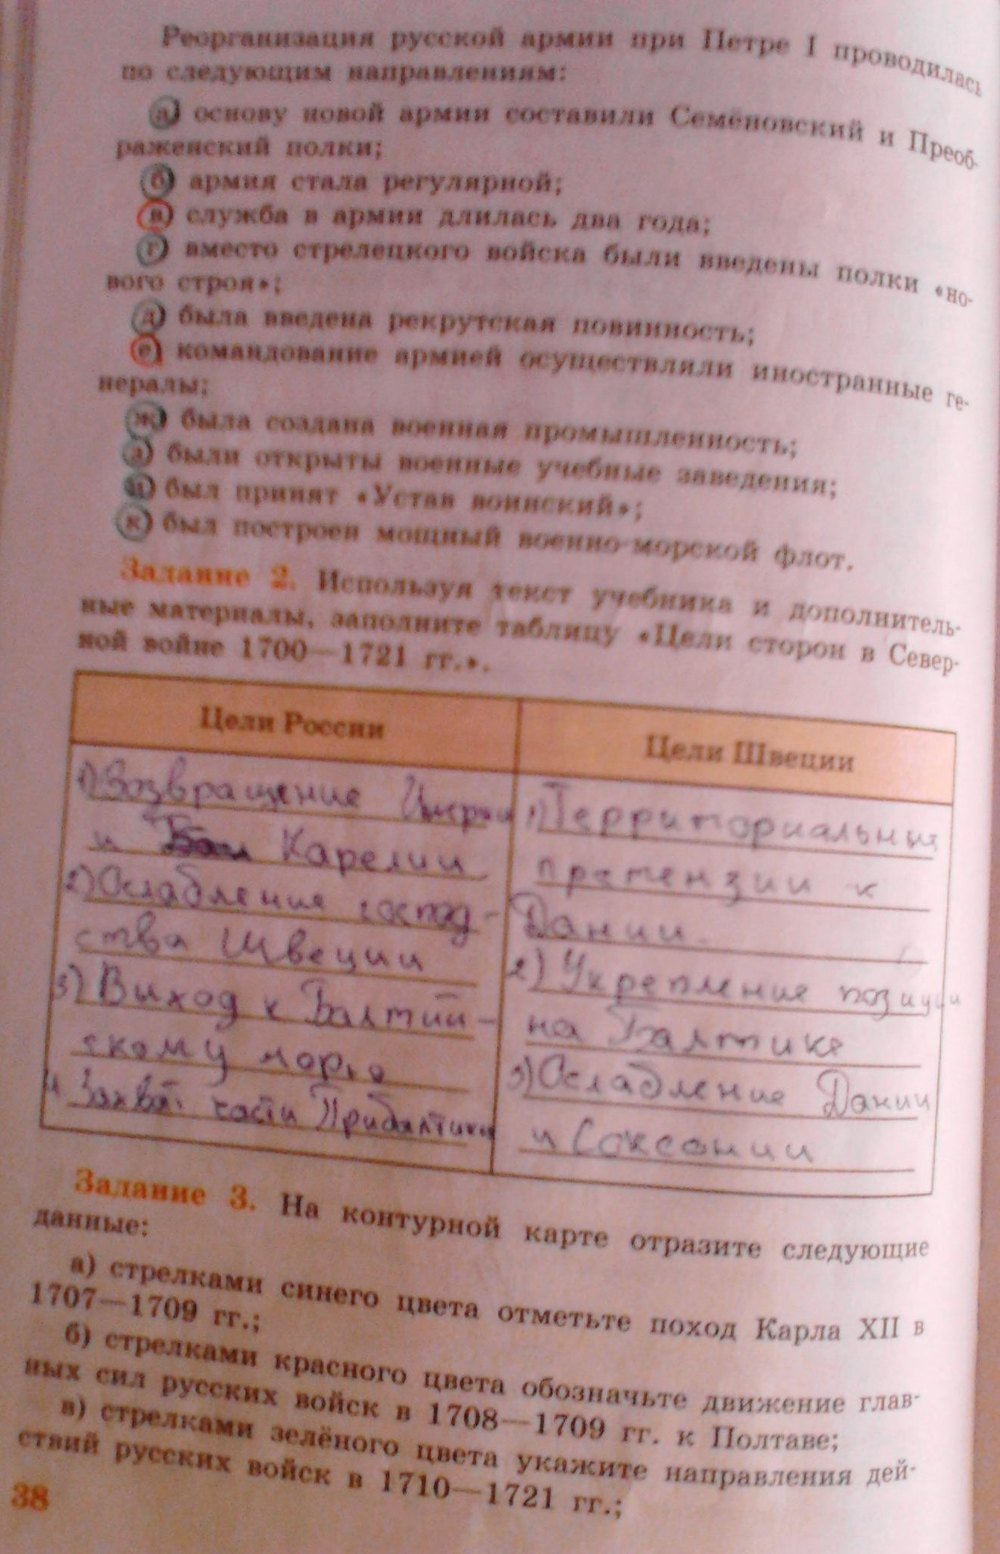 Реорганизация русской армии при Петре I проводилась
по следующим направлениям:
а) основу новой армии составили Семёновский и Преоб-
раженский полки;
б) армия стала регулярной;
в) служба в армии длилась два года;
г) вместо стрелецкого войска были введены полки «но-
вого строя»;
д) была введена рекрутская повинность;
е) командование армией осуществляли иностранные ге-
нералы;
ж) была создана военная промышленность;
з) были открыты военные учебные заведения;
и) был принят «Устав воинский»;
к) был построен мощный военно-морской флот.
Задание 2. Используя текст учебника и дополнитель-
ные материалы, заполните таблицу «Цели сторон в Север-
ной войне 1700—1721 гг.».
Цели России
1) Возвращение Ингрии
и Карелии
2) Ослабление господ-
ства Швеции
3) Выход к Балтий-
скому морю
4 Захват части Прибалтики
Цели Швеции
1) Территориальные
претензии к
Дании.
2) Укрепление позиции
на Балтике
3) Ослабление Дании
и Саксонии
Задание 3. На контурной карте отразите следующие
данные:
а) стрелками синего цвета отметьте поход Карла XII в
1707—1709 гг.;
б) стрелками красного цвета обозначьте движение глав-
ных сил русских войск в 1708—1709 гг. к Полтаве;
в) стрелками зелёного цвета укажите направления дей-
ствий русских войск в 1710—1721 гг.;
38